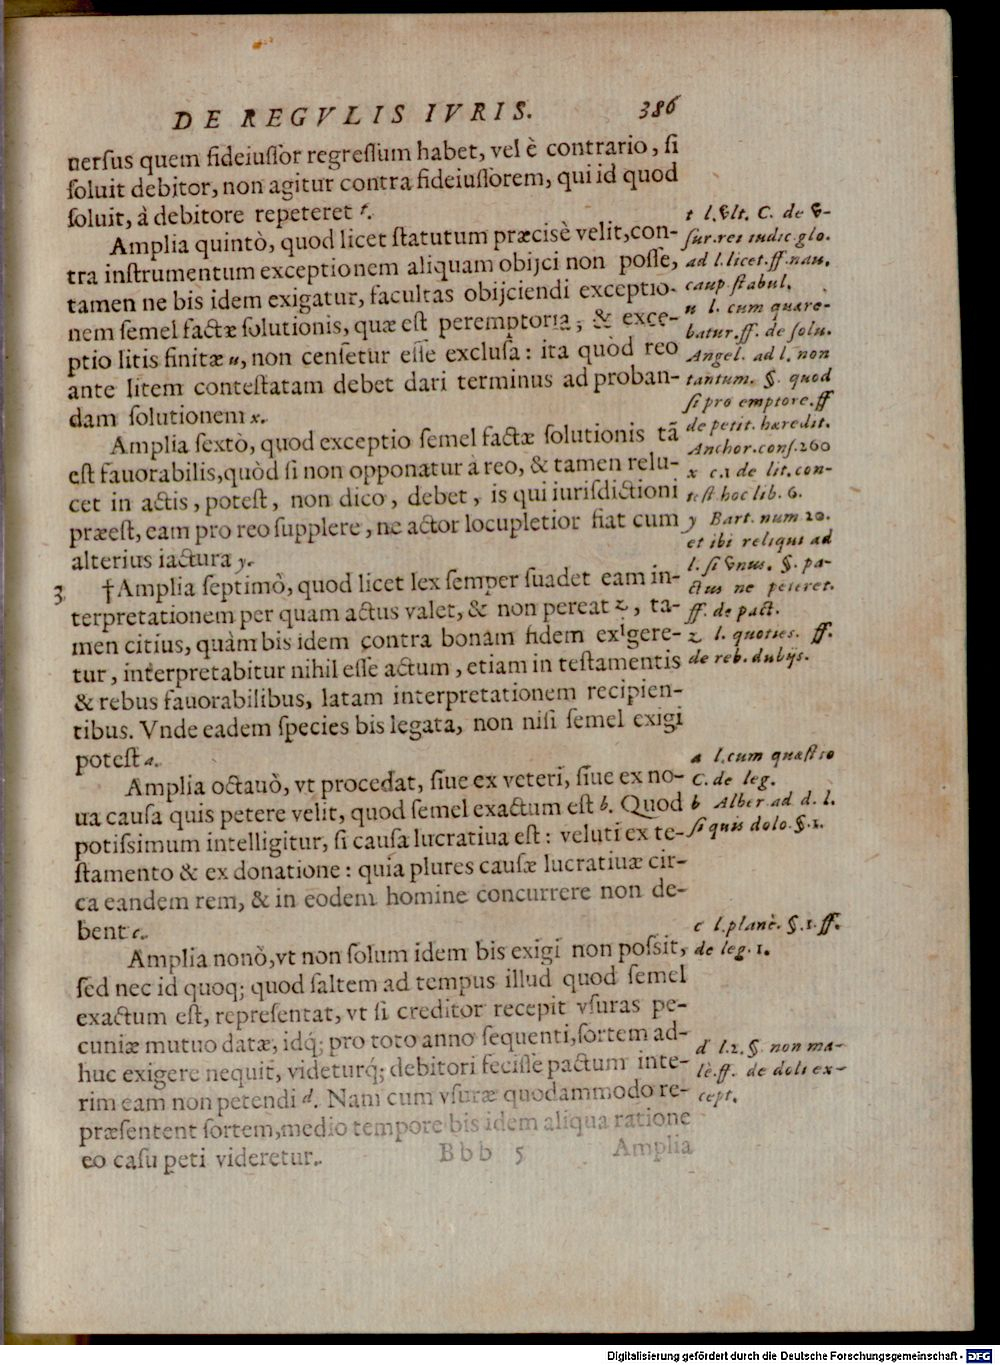 DE REGVLIS IVRIS. 386
uersus quem fideiussor regressum habet, vel è contrario, si
soluit debitor, non agitur contra fideiussorem, qui id quod
soluit, à debitore repeteret t.
Amplia quintò, quod licet statutum præcisè velit, con-
tra instrumentum exceptionem aliquam obijci non posse,
tamen ne bis idem exigatur, facultas obijciendi exceptio-
nem semel factæ solutionis, quæ est peremptoria, & exce-
ptio litis finitæ u, non censetur esse exclusa: ita quòd reo
ante litem contestatam debet dari terminus ad proban-
dam solutionem x.
Amplia sextò, quod exceptio semel factæ solutionis tã
est fauorabilis, quòd si non opponatur à reo, & tamen relu-
cet in actis, potest, non dico, debet, is qui iurisdictioni
præest, eam pro reo supplere, ne actor locupletior fiat cum
alterius iactura y.
3 †Amplia septimò, quod licet lex semper suadet eam in-
terpretationem per quam actus valet, & non pereat z, ta-
men citius, quàm bis idem contra bonam fidem exigere-
tur, interpretabitur nihil esse actum, etiam in testamentis
& rebus fauorabilibus, latam interpretationem recipien-
tibus. Vnde eadem species bis legata, non nisi semel exigi
potest a.
Amplia octauò, vt procedat, siue ex veteri, siue ex no-
ua causa quis petere velit, quod semel exactum est b. Quod
potissimum intelligitur, si causa lucratiua est: veluti ex te-
stamento & ex donatione: quia plures causæ lucratiuæ cir-
ca eandem rem, & in eodem homine concurrere non de-
bent c.
Amplia nonò, vt non solum idem bis exigi non possit,
sed nec id quoq; quod saltem ad tempus illud quod semel
exactum est, repræsentat, vt si creditor recepit vsuras pe-
cuniæ mutuo datæ, idq́; pro toto anno sequenti, sortem ad-
huc exigere nequit, videturq́; debitori fecisse pactum inte-
rim eam non petendi d. Nam cum vsuræ quodammodo re-
præsentent sortem, medio tempore bis idem aliqua ratione
eo casu peti videretur.
Bbb 5 Amplia
t l. vlt. C. de v-
sur. rei iudic. glo.
ad l. licet. ff. nau.
caup. stabul.
u l. cum quære-
batur. ff. de solu.
Angel. ad l. non
tantum. §. quod
si pro emptore. ff
de petit. hæredit.
Anchor. cons. 260
x c. 1 de lit. con-
test. hoc lib. 6.
y Bart. num 20.
et ibi reliqui ad
l. si vnus. §. pa-
ctus ne peteret.
ff. de pact.
z l. quoties. ff.
de reb. dubijs.
a l. cum quæstio
C. de leg.
b Alber ad d. l.
si quis dolo. §. 1.
c l. planè. §. 1. ff.
de leg. 1.
d l. 2. §. non ma-
lè. ff. de doli ex-
cept.
Digitalisierung gefördert durch die Deutsche Forschungsgemeinschaft - DFG